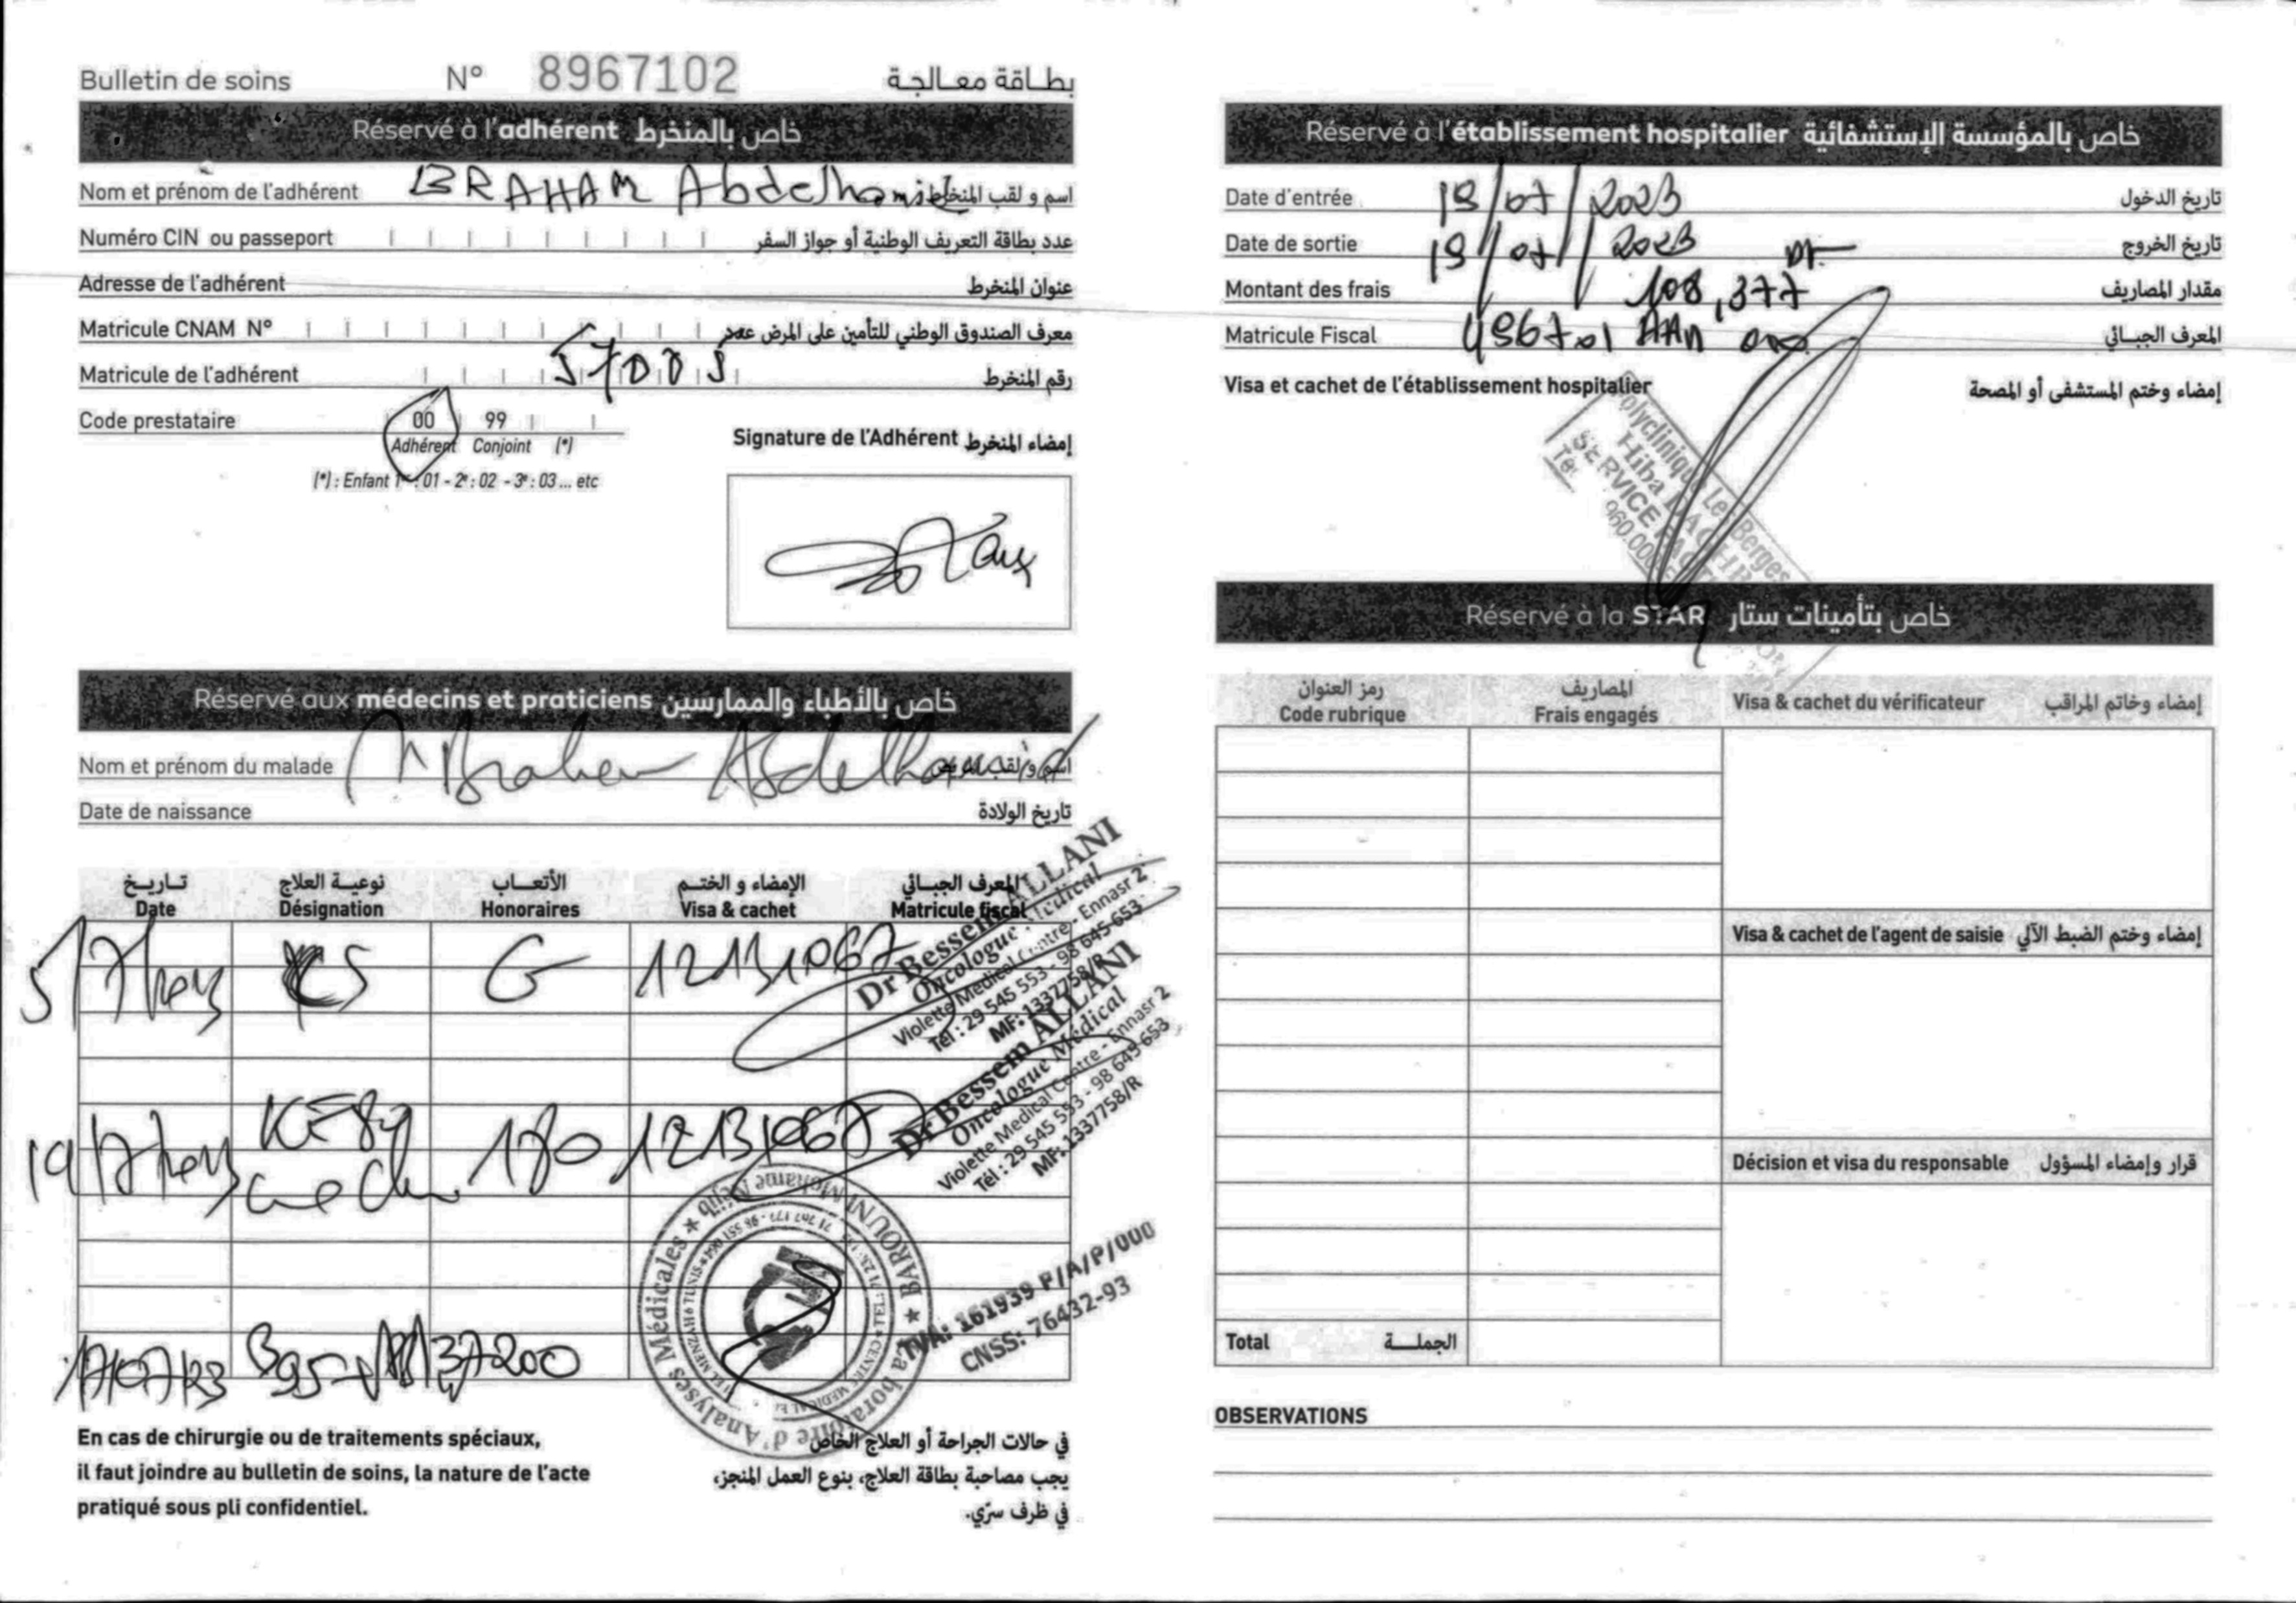 Bulletin de soins N° 8967102 بطاقة معالجة
Réservé à l'adhérent خاص بالمنخرط
Nom et prénom de l'adhérent BRAHAM Abdelhamid اسم و لقب المنخرط
Numéro CIN ou passeport عدد بطاقة التعريف الوطنية أو جواز السفر
Adresse de l'adhérent عنوان المنخرط
Matricule CNAM N° معرف الصندوق الوطني للتأمين على المرض عدد
Matricule de l'adhérent رقم المنخرط
Code prestataire 00 99
Adhérent Conjoint (*)
(*) : Enfant 1er : 01 - 2e : 02 - 3e : 03 ... etc
Signature de l'Adhérent إمضاء المنخرط
Réservé aux médecins et praticiens خاص بالأطباء والممارسين
Nom et prénom du malade Braham Abdelhamid اسم و لقب المريض
Date de naissance تاريخ الولادة
تاريخ نوعية العلاج الأتعاب الإمضاء و الختم المعرف الجبائي
Date Désignation Honoraires Visa & cachet Matricule fiscal
CS G 12131067
Dr Bessem ALLANI
Oncologue Médical
Violette Medical Centre - Ennasr 2
Tél : 29 545 553 - 98 645 653
MF: 1337758/R
180 12131067
Dr Bessem ALLANI
Oncologue Médical
Violette Medical Centre - Ennasr 2
Tél : 29 545 553 - 98 645 653
MF: 1337758/R
17/07/23 B95 137200
Laboratoire d'Analyses Médicales ★ BAROUNI
TVA: 161939 P/A/P/000
CNSS: 76432-93
En cas de chirurgie ou de traitements spéciaux,
il faut joindre au bulletin de soins, la nature de l'acte
pratiqué sous pli confidentiel.
في حالات الجراحة أو العلاج الخاص
يجب مصاحبة بطاقة العلاج، بنوع العمل المنجز،
في ظرف سرّي.
Réservé à l'établissement hospitalier خاص بالمؤسسة الإستشفائية
Date d'entrée 19/07/2023 تاريخ الدخول
Date de sortie 19/07/2023 تاريخ الخروج
Montant des frais 108,377 مقدار المصاريف
Matricule Fiscal المعرف الجبائي
Visa et cachet de l'établissement hospitalier إمضاء وختم المستشفى أو المصحة
Polyclinique Les Berges
Hiba
SERVICE
Réservé à la STAR خاص بتأمينات ستار
رمز العنوان المصاريف
Code rubrique Frais engagés Visa & cachet du vérificateur إمضاء وخاتم المراقب
Visa & cachet de l'agent de saisie إمضاء وختم الضبط الآلي
Décision et visa du responsable قرار وإمضاء المسؤول
Total الجملة
OBSERVATIONS